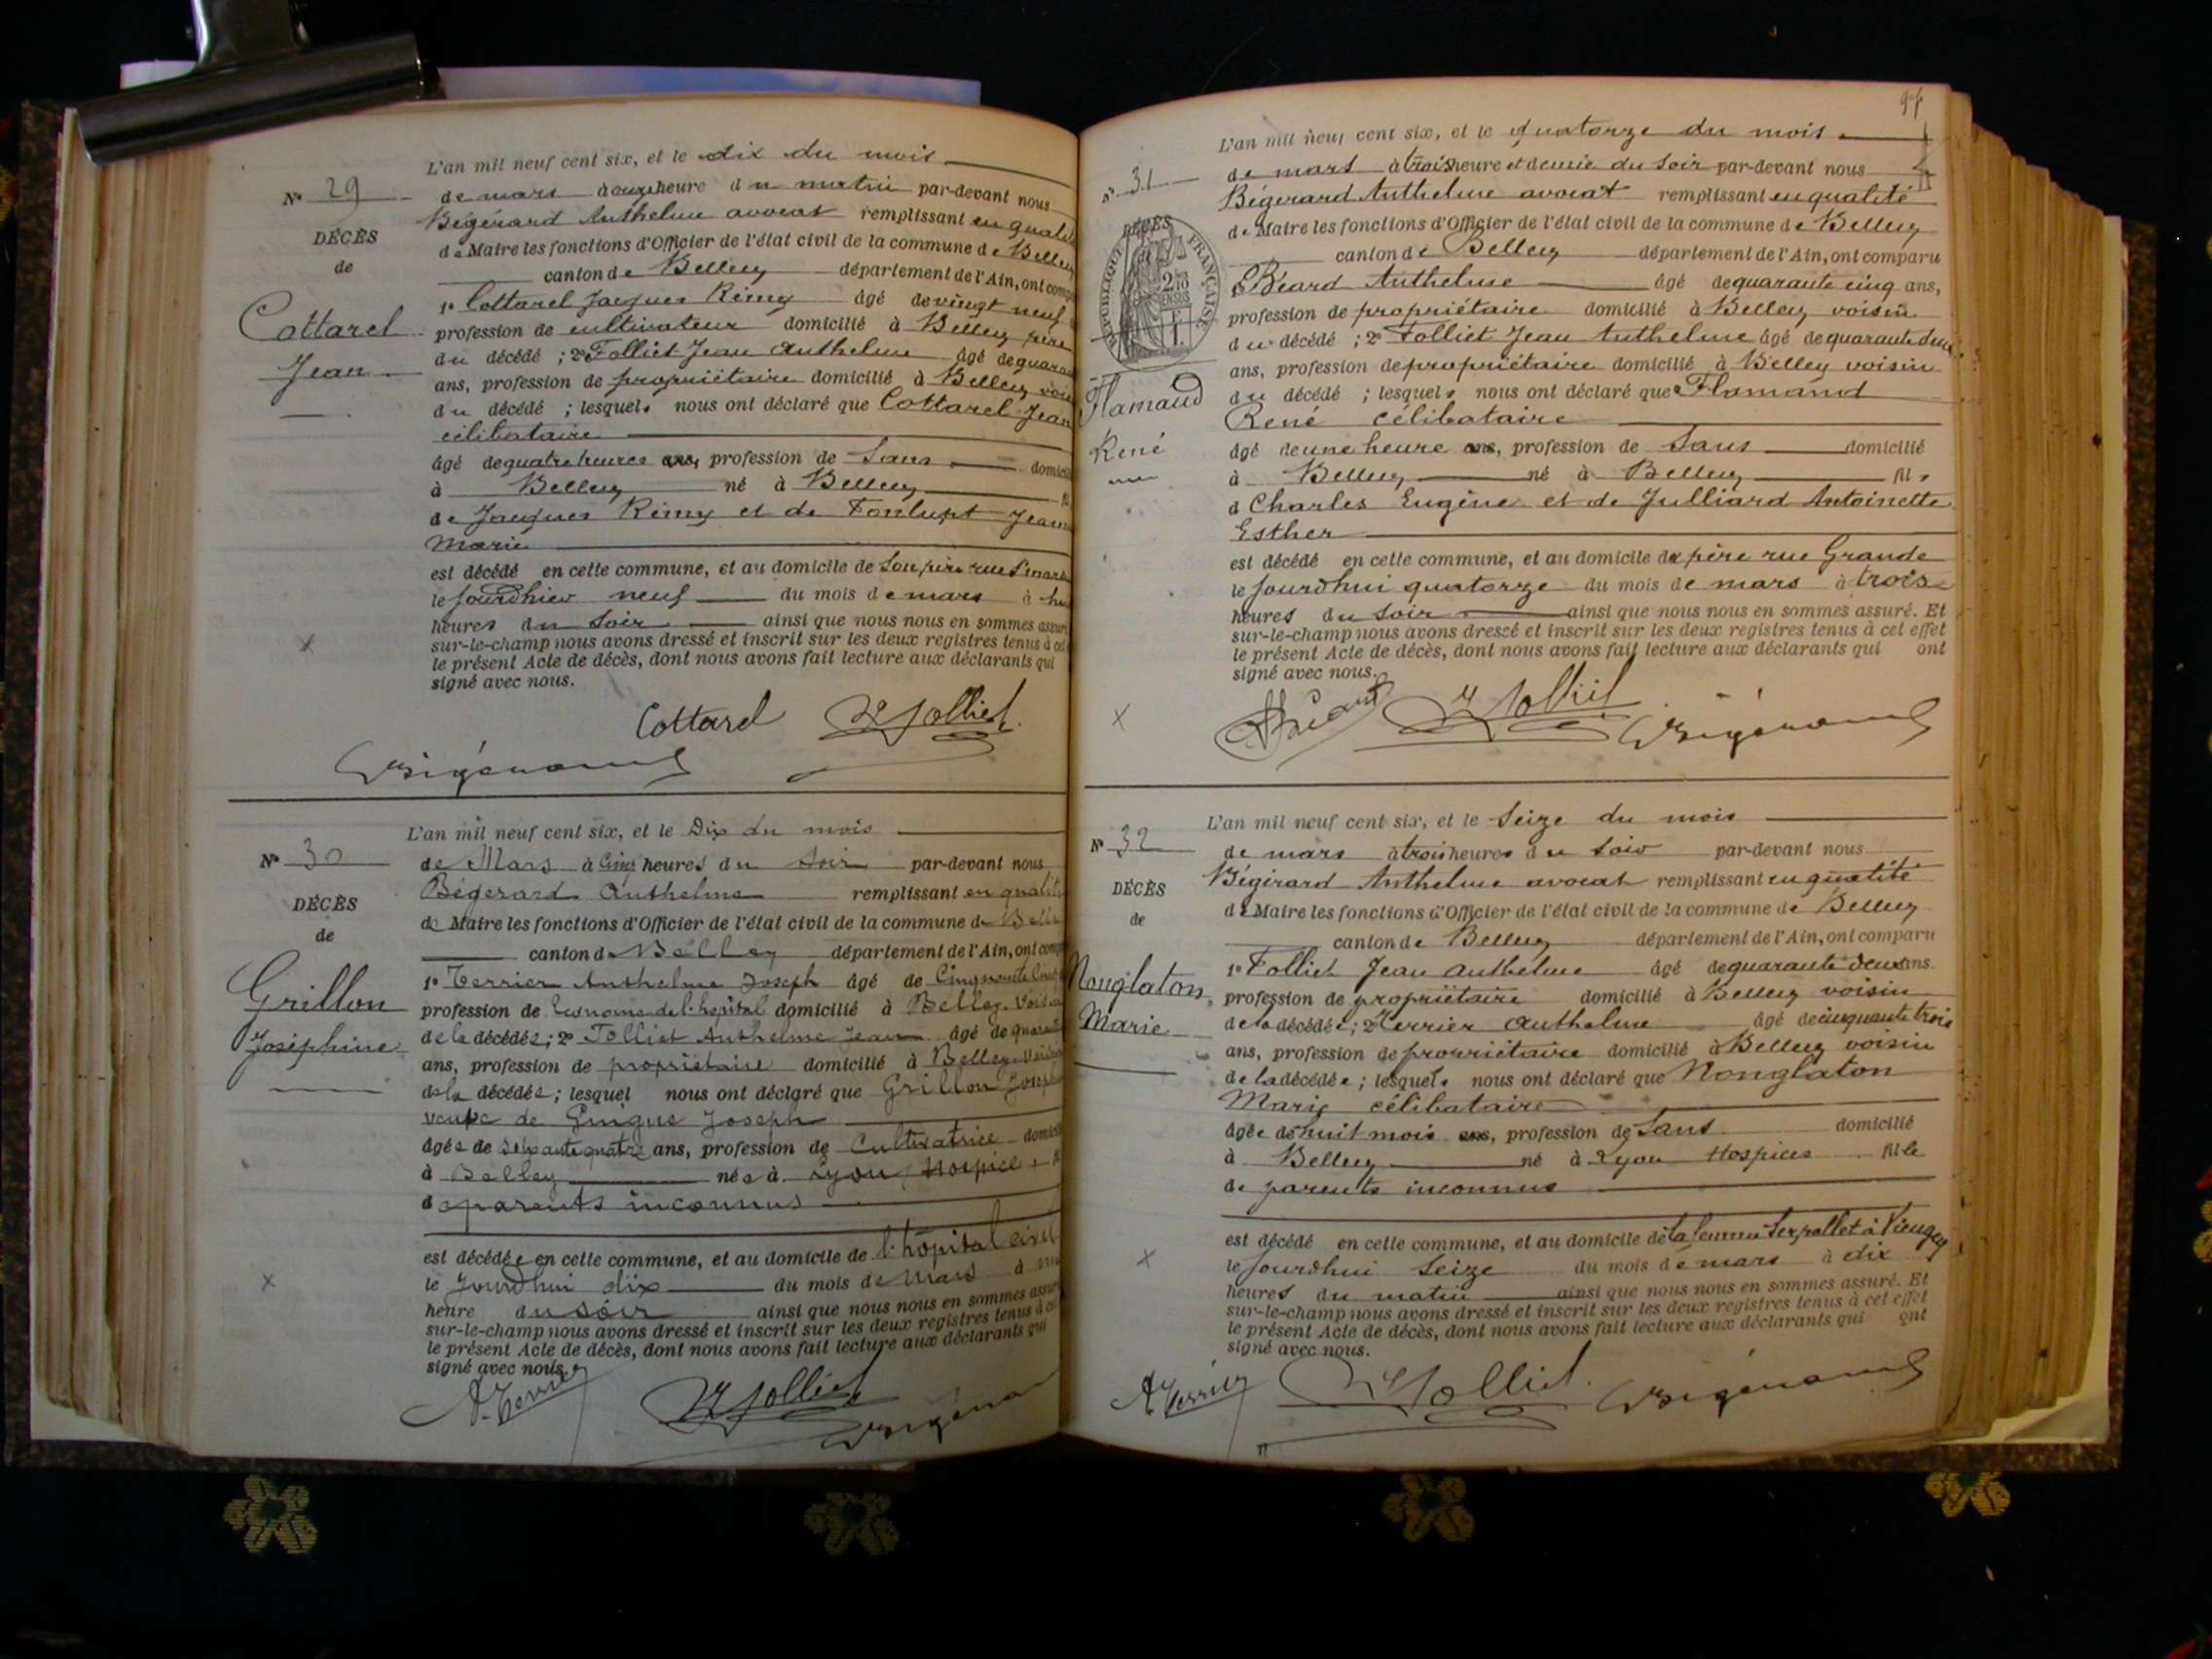 L'an mil neuf cent six, et le dix du mois
Nº 29
de mars à onze heure du matin par-devant nous
Bégérard Anthelme avocat remplissant en qualité
DÉCÈS
de Maire les fonctions d'Officier de l'état civil de la commune de Belley
de
canton de Belley département de l'Ain, ont comp
1º Cottarel Jacques Rémy âgé de vingt neuf
Cottarel
profession de cultivateur domicilié à Belley père
du décédé ; 2º Folliet Jean Anthelme âgé de quaran
Jean
ans, profession de propriétaire domicilié à Belley voi
du décédé ; lesquels nous ont déclaré que Cottarel Jean
célibataire
âgé de quatre heures ans, profession de Sans domici
à Belley né à Belley
de Jacques Rémy et de Fonlupt Jeanne
Marie
est décédé en cette commune, et au domicile de Son père rue
le Jourd'hier neuf du mois de mars à hu
heures du Soir ainsi que nous nous en sommes assuré
sur-le-champ nous avons dressé et inscrit sur les deux registres tenus à cet
le présent Acte de décès, dont nous avons fait lecture aux déclarants qui
signé avec nous.
Cottarel Folliet
Bégérard
L'an mil neuf cent six, et le Dix du mois
Nº 30
de Mars à Cinq heures du Soir par-devant nous
Bégerard Anthelme remplissant en qualité
DÉCÈS
de Maire les fonctions d'Officier de l'état civil de la commune de Belle
de
canton de Belley département de l'Ain, ont comp
1º Terrier Anthelme Joseph âgé de Cinquante
Grillon
profession de Econome de l'hôpital domicilié à Belley Voisin
de la décédée ; 2º Folliet Anthelme Jean âgé de quarante
Joséphine
ans, profession de propriétaire domicilié à Belley Voisin
de la décédée ; lesquel nous ont déclaré que Grillon Joseph
veuve de Gingue Joseph
âgée de Soixante quatre ans, profession de Cultivatrice domici
à Belley née à Lyon Hospice
de parents inconnus
est décédée en cette commune, et au domicile de l'hôpital civil
le Jourd'hui dix du mois de Mars à
heure du soir ainsi que nous nous en sommes assu
sur-le-champ nous avons dressé et inscrit sur les deux registres tenus à cet
le présent Acte de décès, dont nous avons fait lecture aux déclarants qui
signé avec nous.
A. Terrier Folliet Bégérar
L'an mil neuf cent six, et le Quatorze du mois
Nº 31
de mars à trois heure et demie du Soir par-devant nous
Bégerard Anthelme avocat remplissant en qualité
DÉCÈS
RÉPUBLIQUE FRANÇAISE
de Maire les fonctions d'Officier de l'état civil de la commune de Belley
canton de Belley département de l'Ain, ont comparu
Béard Anthelme âgé de quarante cinq ans,
profession de propriétaire domicilié à Belley voisin
du décédé ; 2º Folliet Jean Anthelme âgé de quarante deux
ans, profession de propriétaire domicilié à Belley voisin
Flamand
du décédé ; lesquels nous ont déclaré que Flamand
René célibataire
René
âgé de une heure ans, profession de Sans domicilié
à Belley né à Belley fils
d Charles Eugène et de Julliard Antoinette
Esther
est décédé en cette commune, et au domicile de père rue Grande
le Jourd'hui quatorze du mois de mars à trois
heures du Soir ainsi que nous nous en sommes assuré. Et
sur-le-champ nous avons dressé et inscrit sur les deux registres tenus à cet effet
le présent Acte de décès, dont nous avons fait lecture aux déclarants qui ont
signé avec nous.
Béard Folliet Bégérard
L'an mil neuf cent six, et le Seize du mois
Nº 32
de mars à trois heures du Soir par-devant nous
Bégérard Anthelme avocat remplissant en qualité
DÉCÈS
de Maire les fonctions d'Officier de l'état civil de la commune de Belley
de
canton de Belley département de l'Ain, ont comparu
1º Folliet Jean Anthelme âgé de quarante deux ans.
Nonglaton
profession de propriétaire domicilié à Belley voisin
Marie
de la décédée ; 2º Terrier Anthelme âgé de cinquante trois
ans, profession de propriétaire domicilié à Belley voisin
de la décédée ; lesquels nous ont déclaré que Nonglaton
Marie célibataire
âgée de huit mois ans, profession de Sans domicilié
à Belley né à Lyon Hospices fille
de parents inconnus
est décédé en cette commune, et au domicile de la femme Serpollet à
le Jourd'hui Seize du mois de mars à dix
heures du matin ainsi que nous nous en sommes assuré. Et
sur-le-champ nous avons dressé et inscrit sur les deux registres tenus à cet effet
le présent Acte de décès, dont nous avons fait lecture aux déclarants qui ont
signé avec nous.
A. Terrier Folliet Bégérard